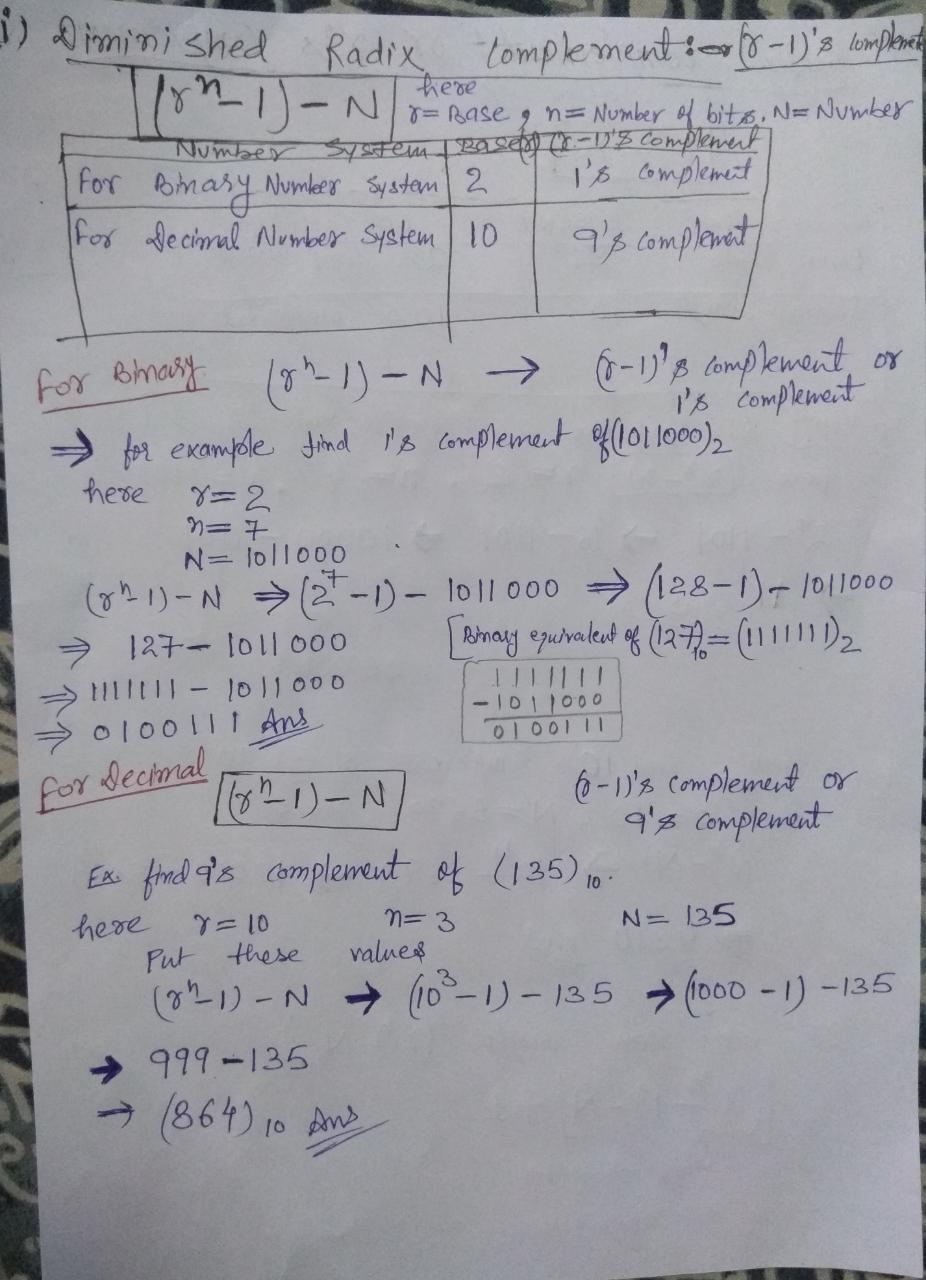 i) Diminished Radix Complement :- or (r-1)'s Complement
(rⁿ-1) - N here
r = Base, n = Number of bits, N = Number
Number System Base(r) (r-1)'s Complement
For Binary Number System 2 1's Complement
For Decimal Number System 10 9's Complement
For Binary (rⁿ-1) - N → (r-1)'s Complement or
1's Complement
⇒ for example find 1's Complement of (1011000)₂
here r = 2
n = 7
N = 1011000
(rⁿ-1) - N ⇒ (2⁷-1) - 1011000 ⇒ (128-1) - 1011000
⇒ 127 - 1011000 [Binary equivalent of (127)₁₀ = (1111111)₂
⇒ 1111111 - 1011000
1111111
- 1011000
0100111
⇒ 0100111 Ans
For Decimal (rⁿ-1) - N (r-1)'s Complement or
9's Complement
Ex. find 9's Complement of (135)₁₀.
here r = 10 n = 3 N = 135
Put these values
(rⁿ-1) - N → (10³-1) - 135 → (1000-1) - 135
→ 999 - 135
→ (864)₁₀ Ans